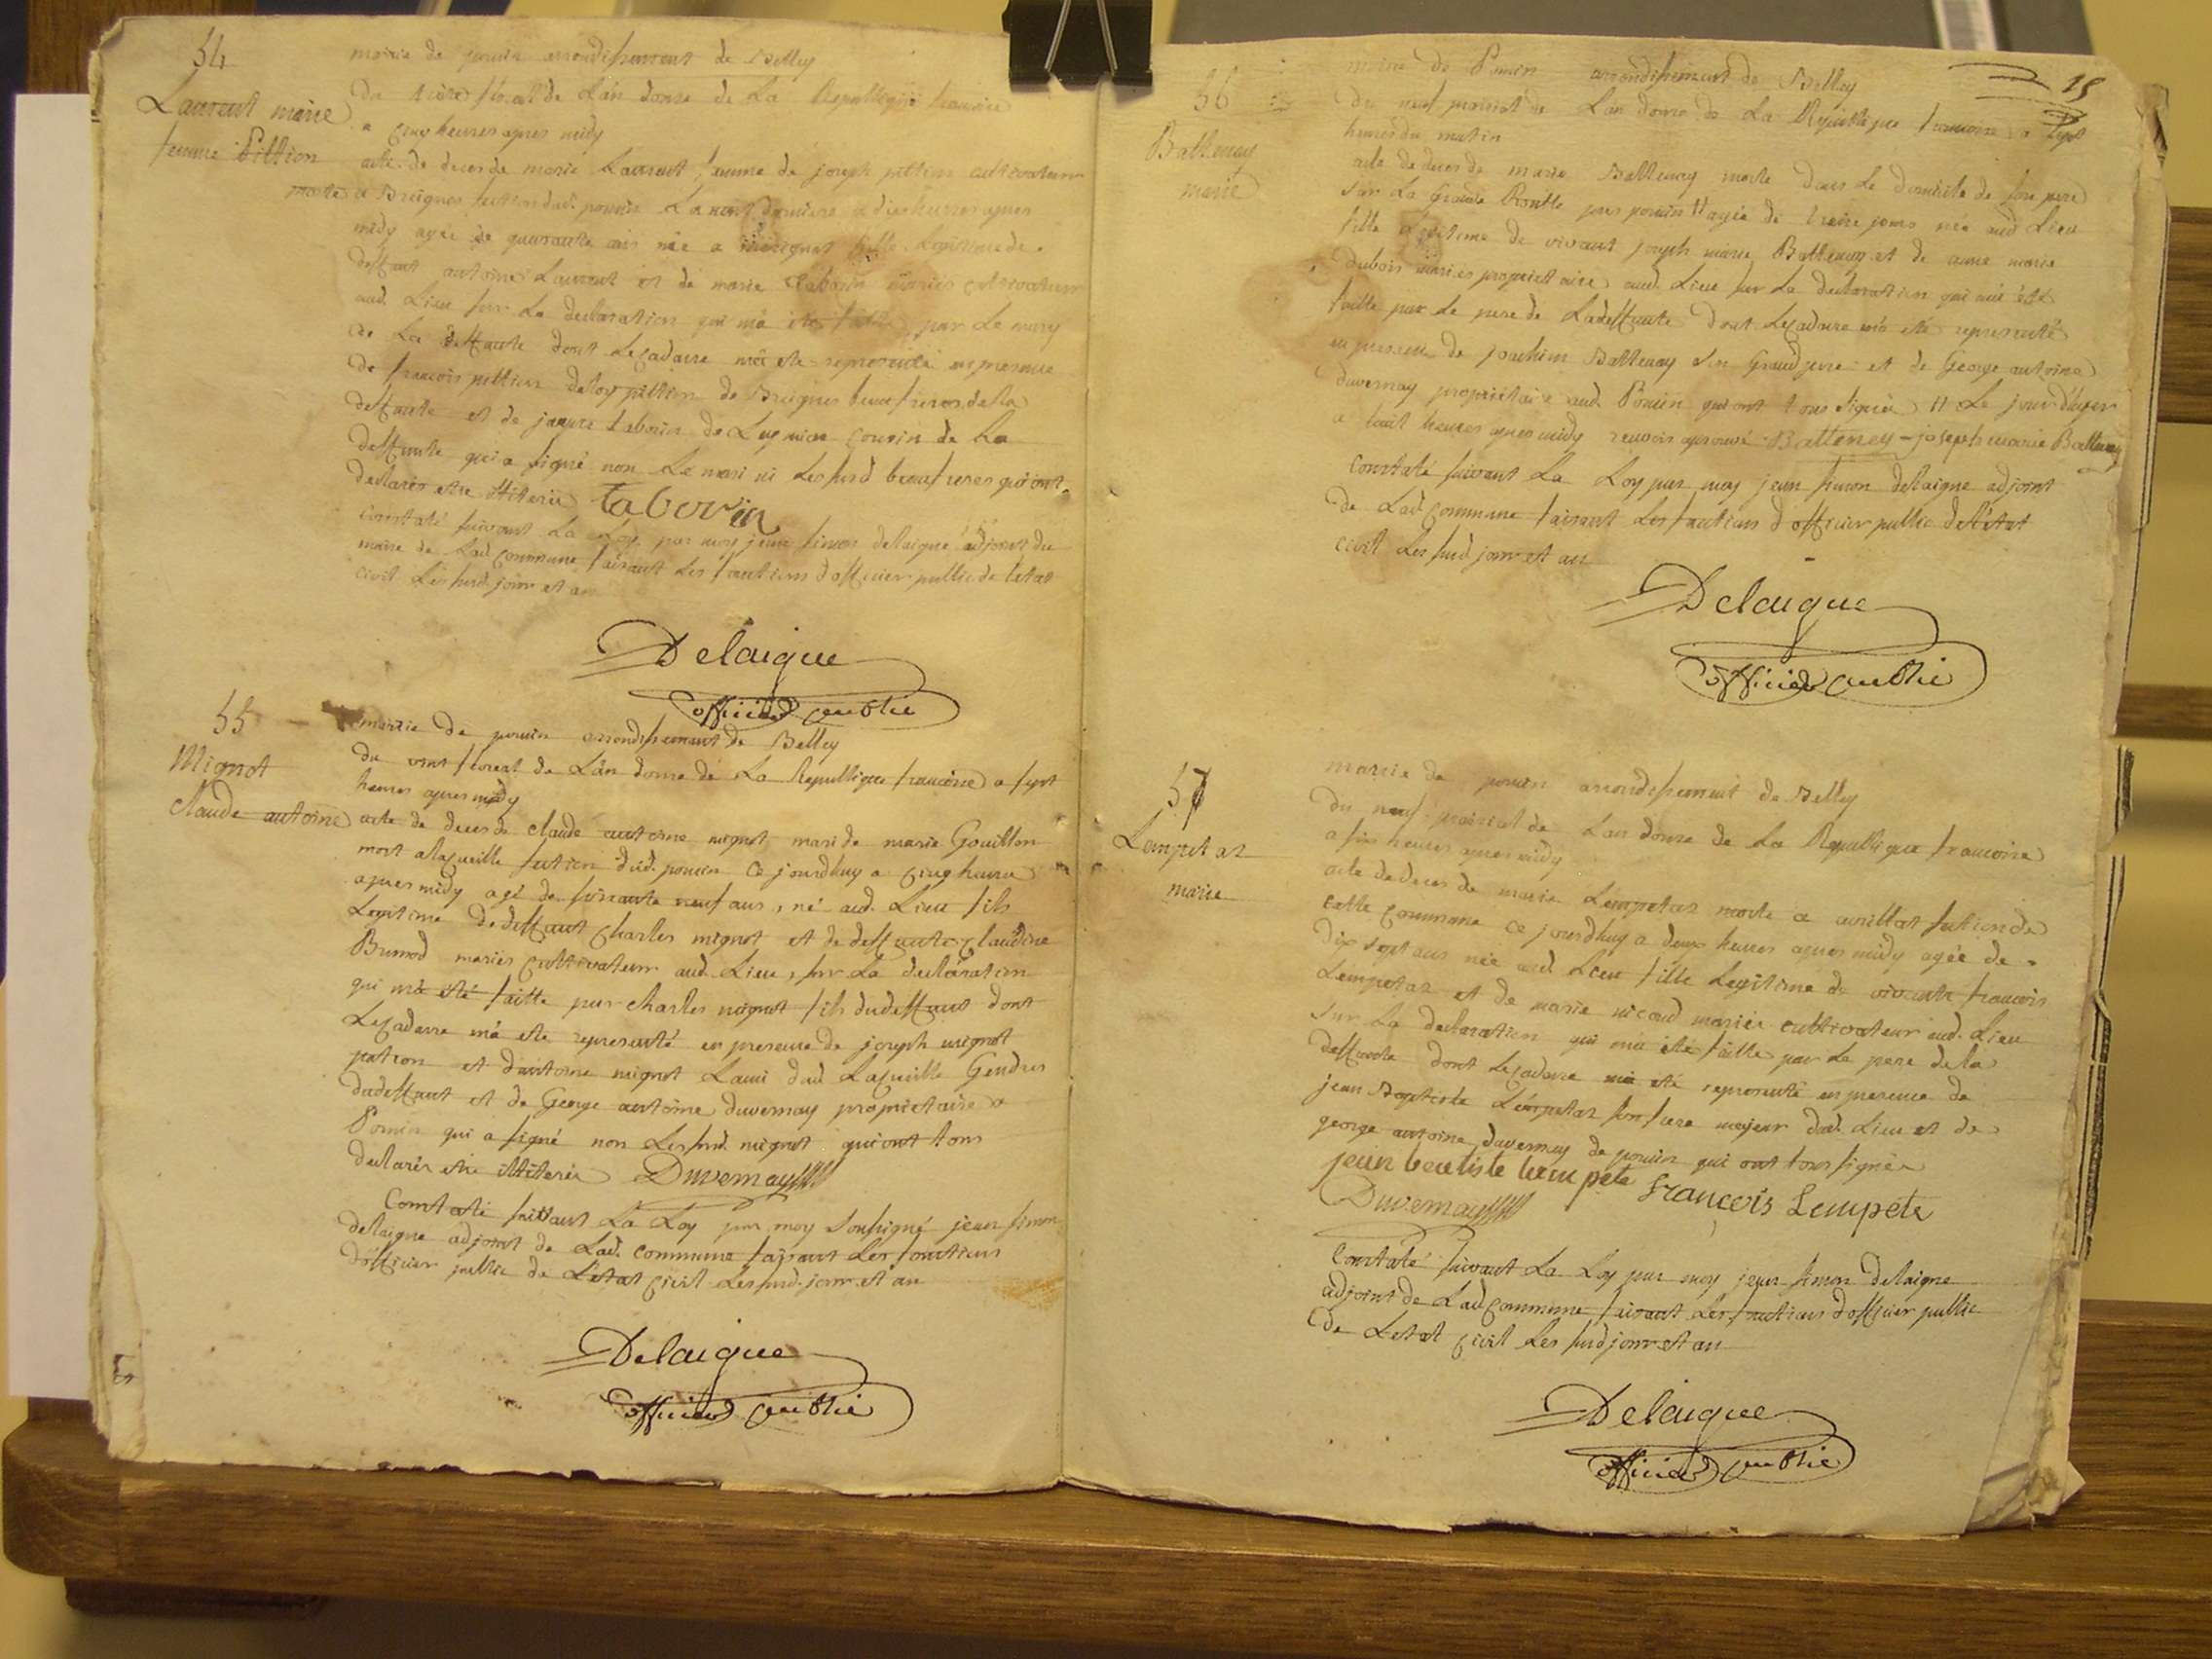 54
Laurent marie
femme Pittion
mairie de pouin arrondissement de Belley
du floreal de Lan douze de La Republique francoise
a cinq heures apres midy
acte de deces de marie Laurent femme de joseph pittion cultivateur
morte a Breignes section dud. pouin La nuit derniere a dix heures apres
midy agée de quarante ans née a fille Legitime de
deffunt antoine Laurent et de marie Tabouin mariés cultivateur
aud. Lieu sur La declaration qui ma été faitte par Le mary
de La deffunte dont Le cadavre ma ete representé en presence
de francois pittion de Breignes beaufreres de la
deffunte et de jacques tabouin de cousin de La
deffunte qui a signé non Le mari ni Les susd beaufreres qui ont
declarés etre illiterés tabouin
Constaté suivant La Loy par moy jean simon delaigue adjoint du
maire de Lad commune faisant Les fonctions d'officier public de Letat
civil Les susd. jour et an
Delaigue
officier public
55
Mignot
claude antoine
mairie de pouin arrondissement de Belley
du vint floreal de Lan douze de La Republique francoise a sept
heures apres midy
acte de deces de claude antoine mignot mari de marie Gouillon
mort a Lacueille section dud. pouin ce jourdhuy a cinq heures
apres midy agé de soixante neuf ans, né aud. Lieu fils
Legitime de deffunt Charles mignot et de deffunte Claudine
Brunod mariés cultivateur aud. Lieu, sur La declaration
qui ma été faitte par charles mignot fils du deffunt dont
Le Cadavre ma ete representé en presence de joseph mignot
patron et dantoine mignot Laui dud Lacueille Gendres
du deffunt et de George antoine duvernay proprietaire a
Pouin qui a signé non Les susd. mignot qui ont tous
declarés etre illiterés Duvernay
Constaté suivant La Loy par moy soussigné jean simon
delaigue adjoint de Lad. commune faisant Les fonctions
d'officier public de L'etat civil Les susd. jour et an
Delaigue
officier public
15
56
Battenay
marie
mairie de Pouin arrondissement de Belley
du neuf prairial de Lan douze de La Republique francoise a sept
heures du matin
acte de deces de marie Battenay morte dans Le domicile de son pere
sur La Grande Routte pres pouin 11 agée de treize jours née aud Lieu
fille Legitime de vivant joseph marie Battenay et de anne marie
dubois mariés proprietaire aud. Lieu sur La declaration qui ma été
faitte par Le pere de Ladeffunte dont Le cadavre ma ete representé
en presence de joachim Battenay son Grand pere et de George antoine
duvernay proprietaire aud. Pouin qui ont tous signés 11 Le jour d'hyer
a huit heures apres midy renvois aprouvé Batteney - joseph marie Battenay
Constaté suivant La Loy par moy jean simon delaigue adjoint
de Lad commune faisant Les fonctions d'officier public de l'etat
civil Les susd. jour et an
Delaigue
officier public
57
Lempetaz
marie
mairie de pouin arrondissement de Belley
du neuf prairial de Lan douze de La Republique francoise
a six heures apres midy
acte de deces de marie Lempetaz morte a section de
cette Commune ce jourdhuy a deux heures apres midy agée de
dix sept ans née aud Lieu fille Legitime de vivants francois
Lempetaz et de marie nicoud mariés cultivateur aud. Lieu
sur La declaration qui ma été faitte par Le pere de la
deffunte dont Le cadavre ma été representé en presence de
jean Baptiste Lempetaz son frere majeur dud. Lieu et de
george antoine duvernay de pouin qui ont tous signés
jean beatiste lempete françois Lempéte
Duvernay
Constaté suivant La Loy par moy jean simon delaigue
adjoint de Lad commune faisant Les fonctions d'officier public
de Letat civil Les susd jour et an
Delaigue
officier public